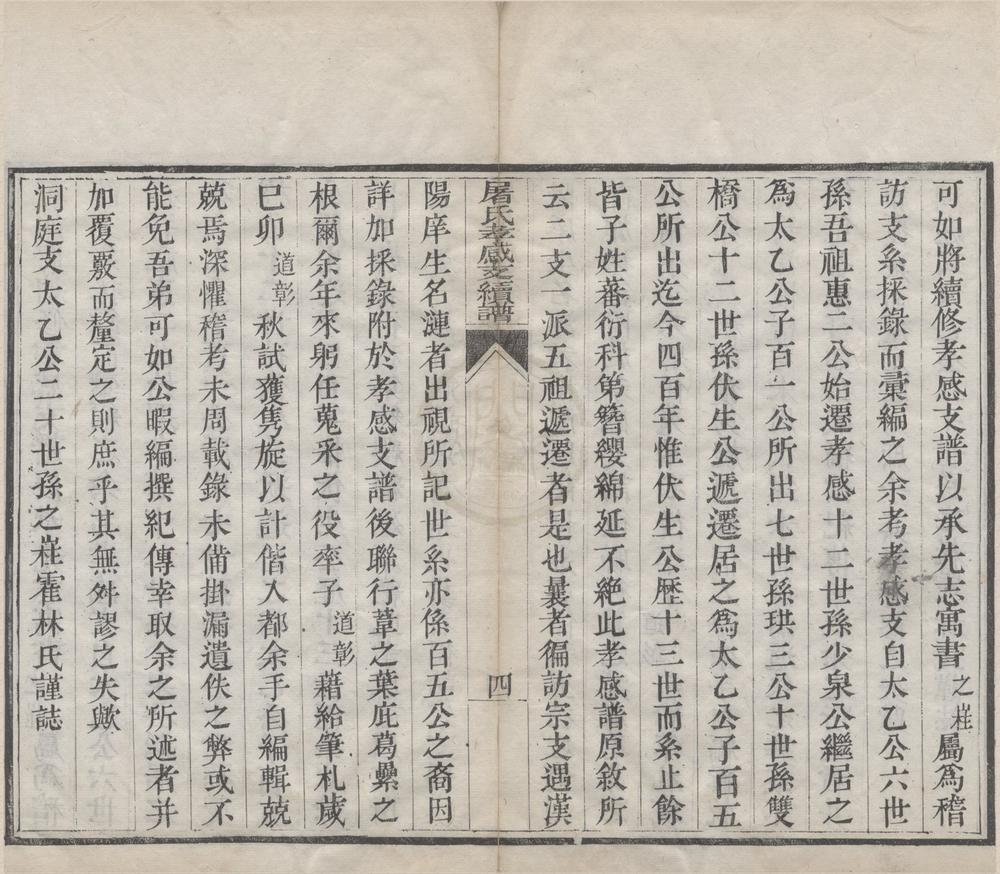 可如將續修孝感支譜以承先志寓書之嵀屬為稽
訪支系採錄而彙編之余考孝感支自太乙公六世
孫吾祖惠二公始遷孝感十二世孫少泉公繼居之
為太乙公子百一公所出七世孫珙三公十世孫雙
橋公十二世孫伏生公遞遷居之為太乙公子百五
公所出迄今四百年惟伏生公歷十三世而系止餘
皆子姓蕃衍科第簪纓綿延不絕此孝感譜原敘所
云二支一派五祖遞遷者是也曩者徧訪宗支遇漢
屠氏孝感支續譜
四
陽庠生名漣者出視所記世系亦係百五公之裔因
詳加採錄附於孝感支譜後聯行葦之葉庇葛虆之
根爾余年來躬任蒐采之役率子道彰藉給筆札歲
巳卯道彰秋試獲雋旋以計偕入都余手自編輯兢
兢焉深懼稽考未周載錄未備掛漏遺佚之弊或不
能免吾弟可如公暇編撰紀傳幸取余之所述者并
加覆覈而釐定之則庶乎其無舛謬之失歟
洞庭支太乙公二十世孫之嵀霍林氏謹誌